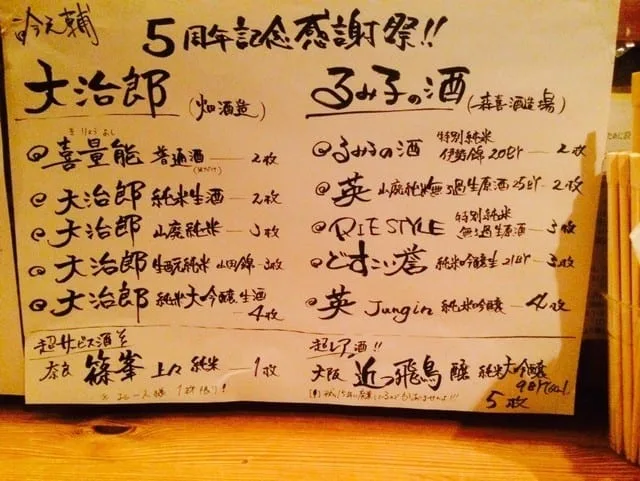 5周年記念感謝祭!!
大治郎 (畑酒造)
きりょうよし
喜量能 普通酒 2枚
大治郎 純米生酒 2枚
大治郎 山廃純米 3枚
大治郎 生酛純米 山田錦 3枚
大治郎 純米大吟醸生酒 4枚
超サービス酒
奈良 篠峯 上々 純米 1枚
※お一人様 1枚限り!
るみ子の酒 (森喜酒造場)
るみ子の酒 特別純米 伊勢錦 20BY 2枚
英 山廃純米無濾過生原酒 25BY 2枚
RIE STYLE 特別純米 無濾過生原酒 3枚
どすこい誉 純米吟醸生 21BY 3枚
英 Jungin 純米吟醸 4枚
超レア酒!!
大阪 近つ飛鳥 醸 純米大吟醸
5枚